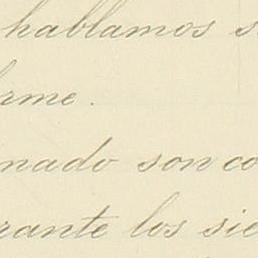 hablamos s
rme.
nado son co
rante los sie